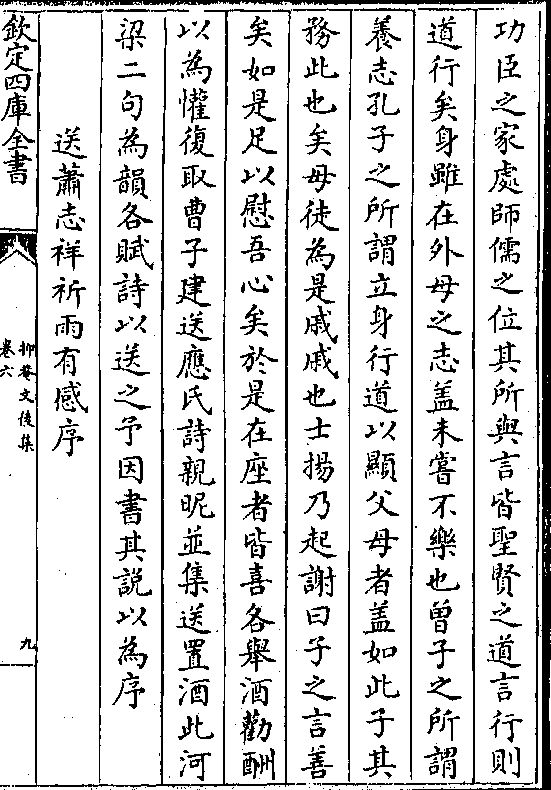 功臣之家處師儒之位其所與言皆聖賢之道言行則
道行矣身雖在外母之志盖未嘗不樂也曾子之所謂
養志孔子之所謂立身行道以顯父母者盖如此子其
務此也矣毋徒為是戚戚也士揚乃起謝曰子之言善
矣如是足以慰吾心矣於是在座者皆喜各舉酒勸酬
以為懽復取曹子建送應氏詩親昵並集送置酒此河
梁二句為韻各賦詩以送之予因書其說以為序
送蕭志祥祈雨有感序
欽定四庫全書
抑菴文後集
卷六
九